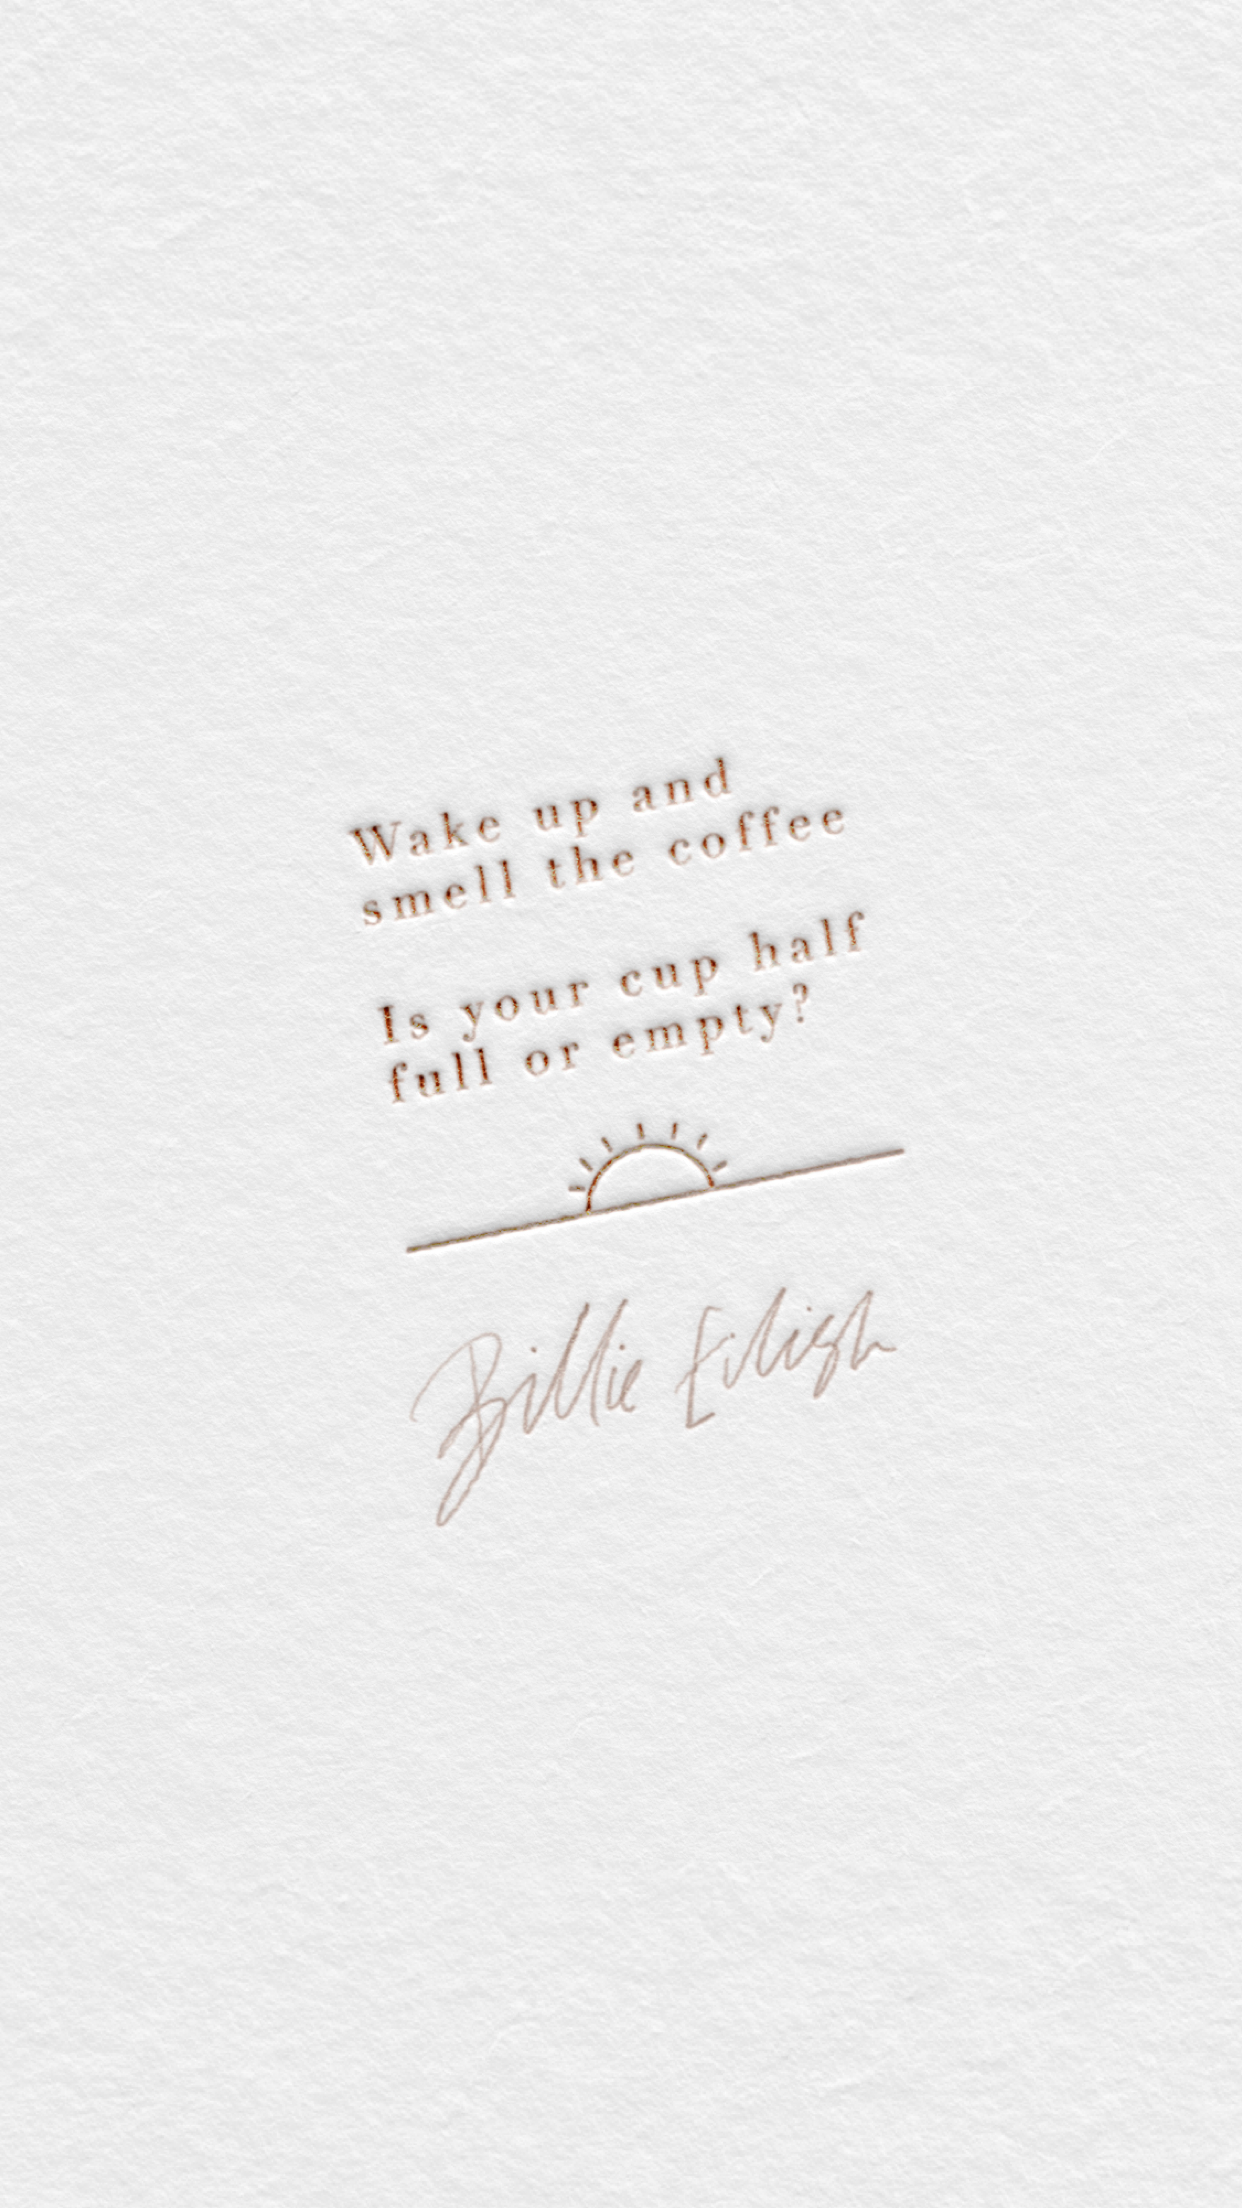 Wake up and
smell the coffee
Is your cup half
full or empty?
Billie Eilish